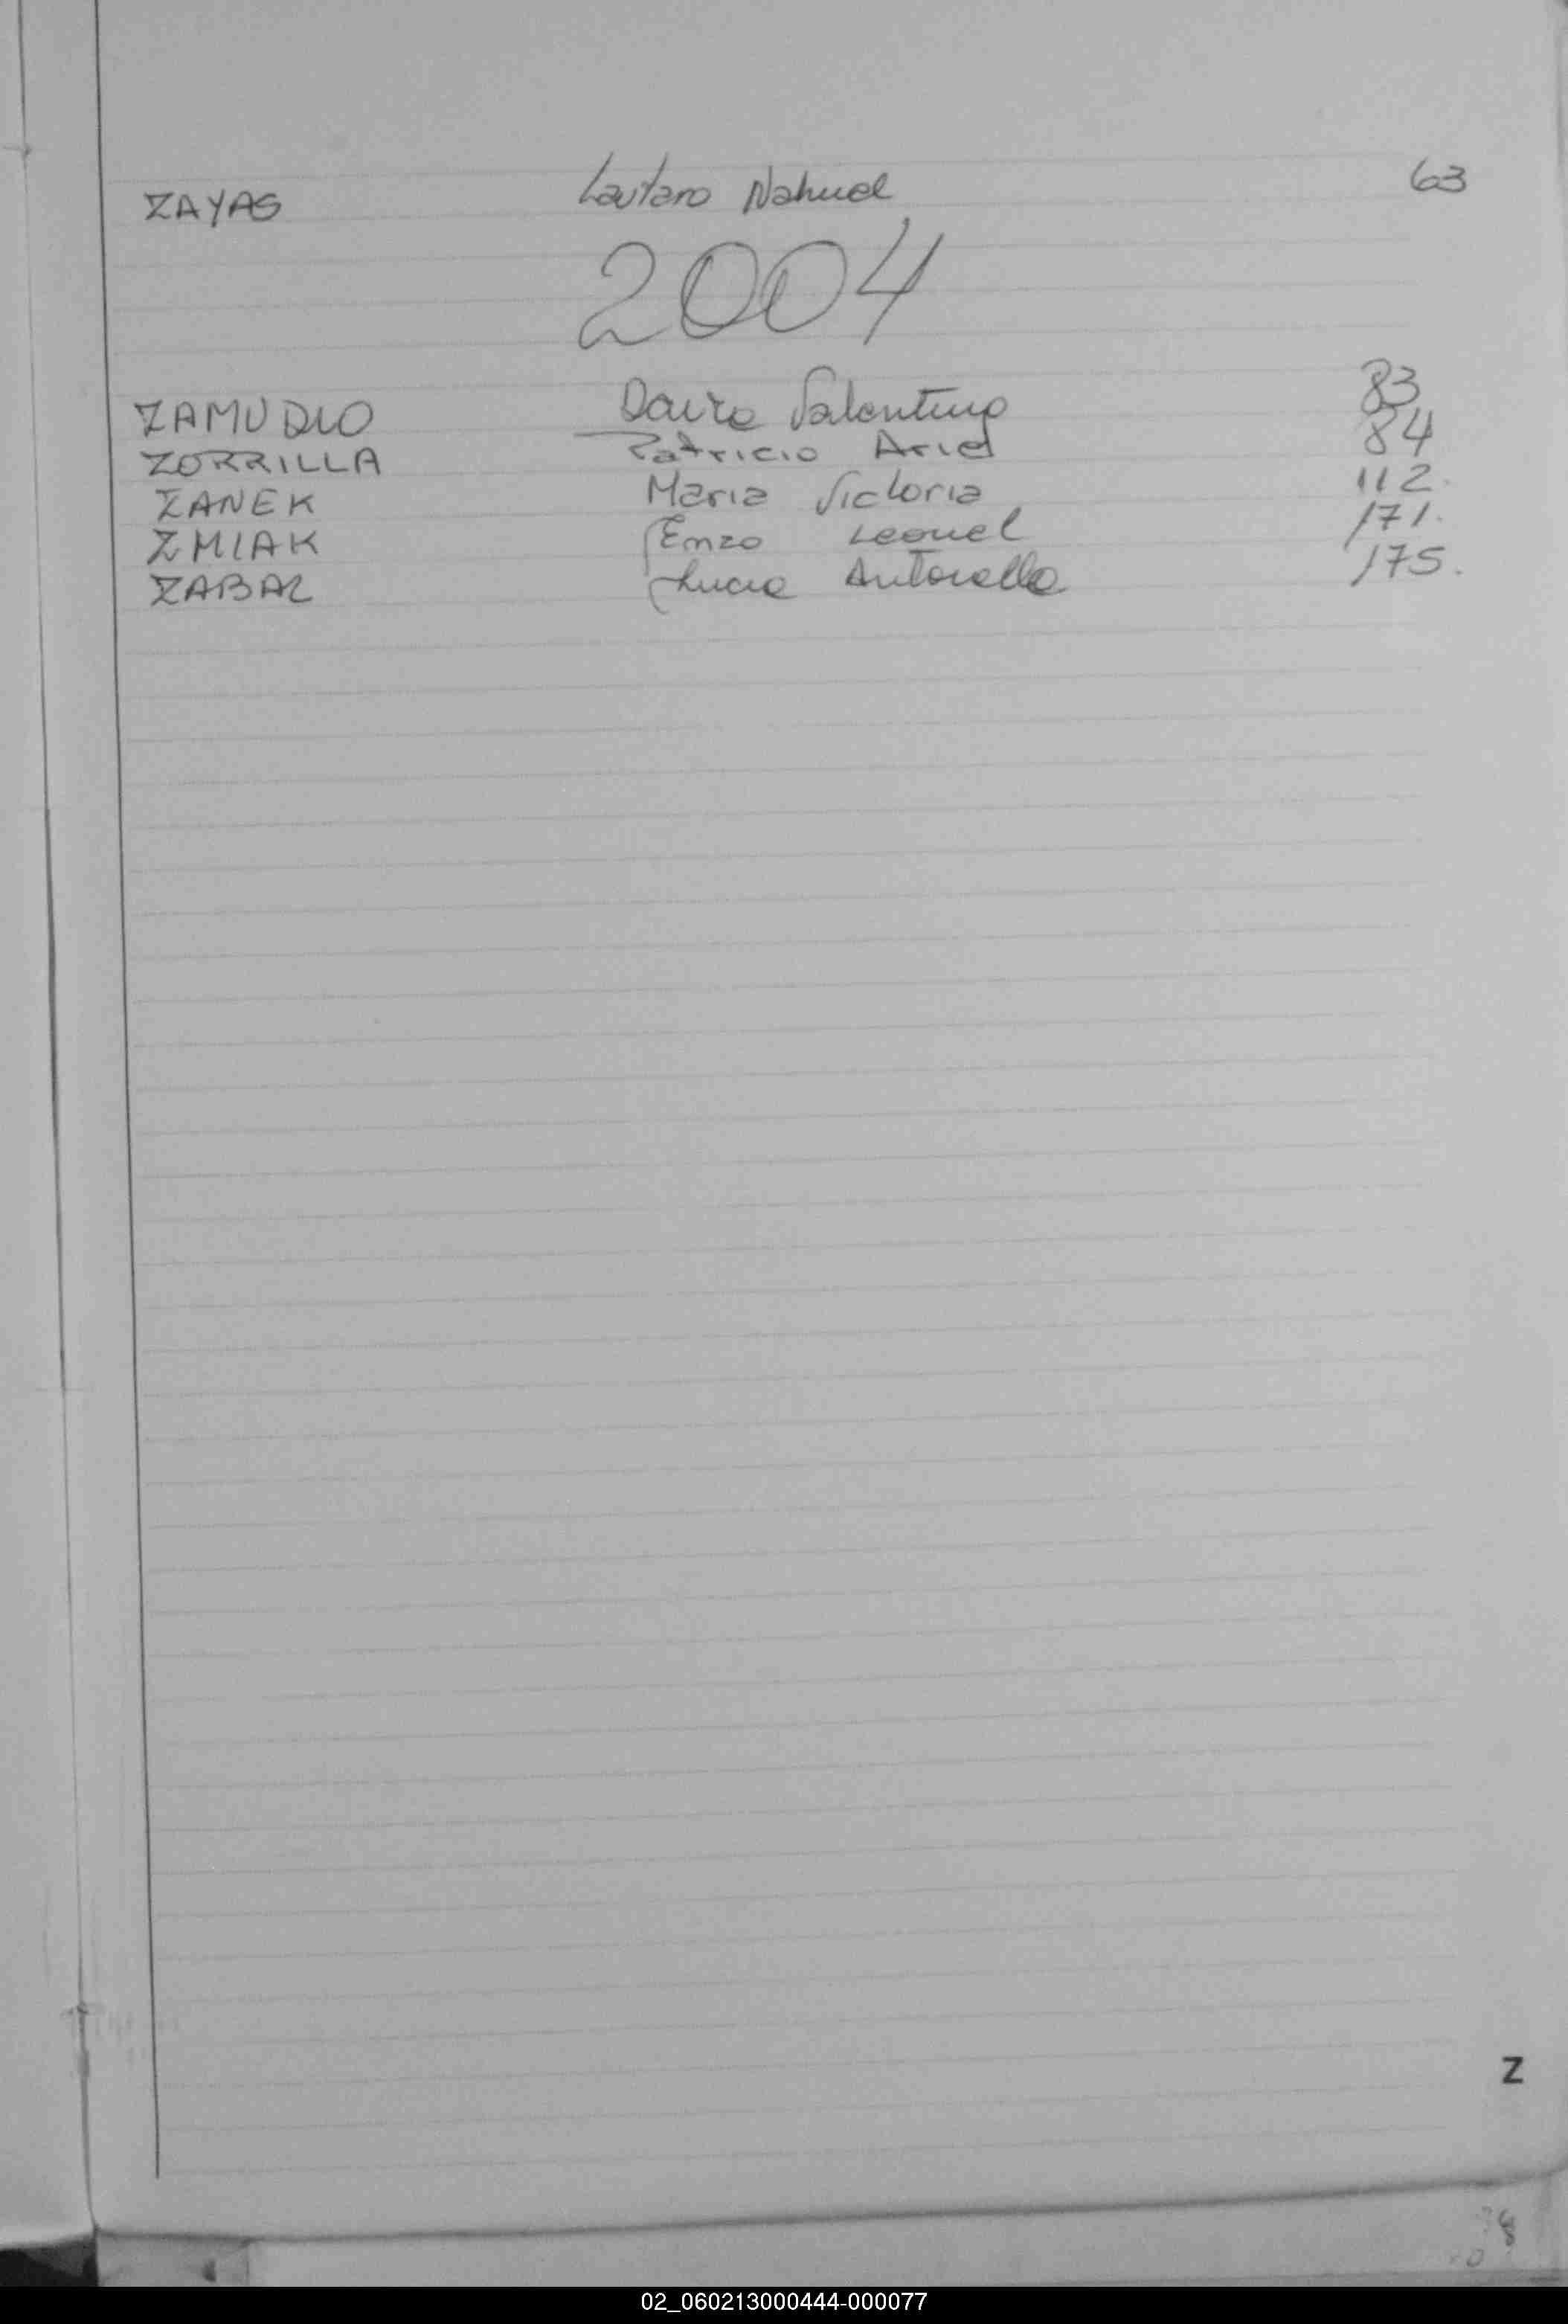 ZAYAS Lautaro Nahuel 63
2004
ZAMUDIO Dairo Valentino 83
ZORRILLA Patricio Ariel 84
ZANEK Maria Victoria 112.
ZMIAK Enzo Leonel 171.
ZABAL Lucia Antonella 175.
Z
02_060213000444-000077